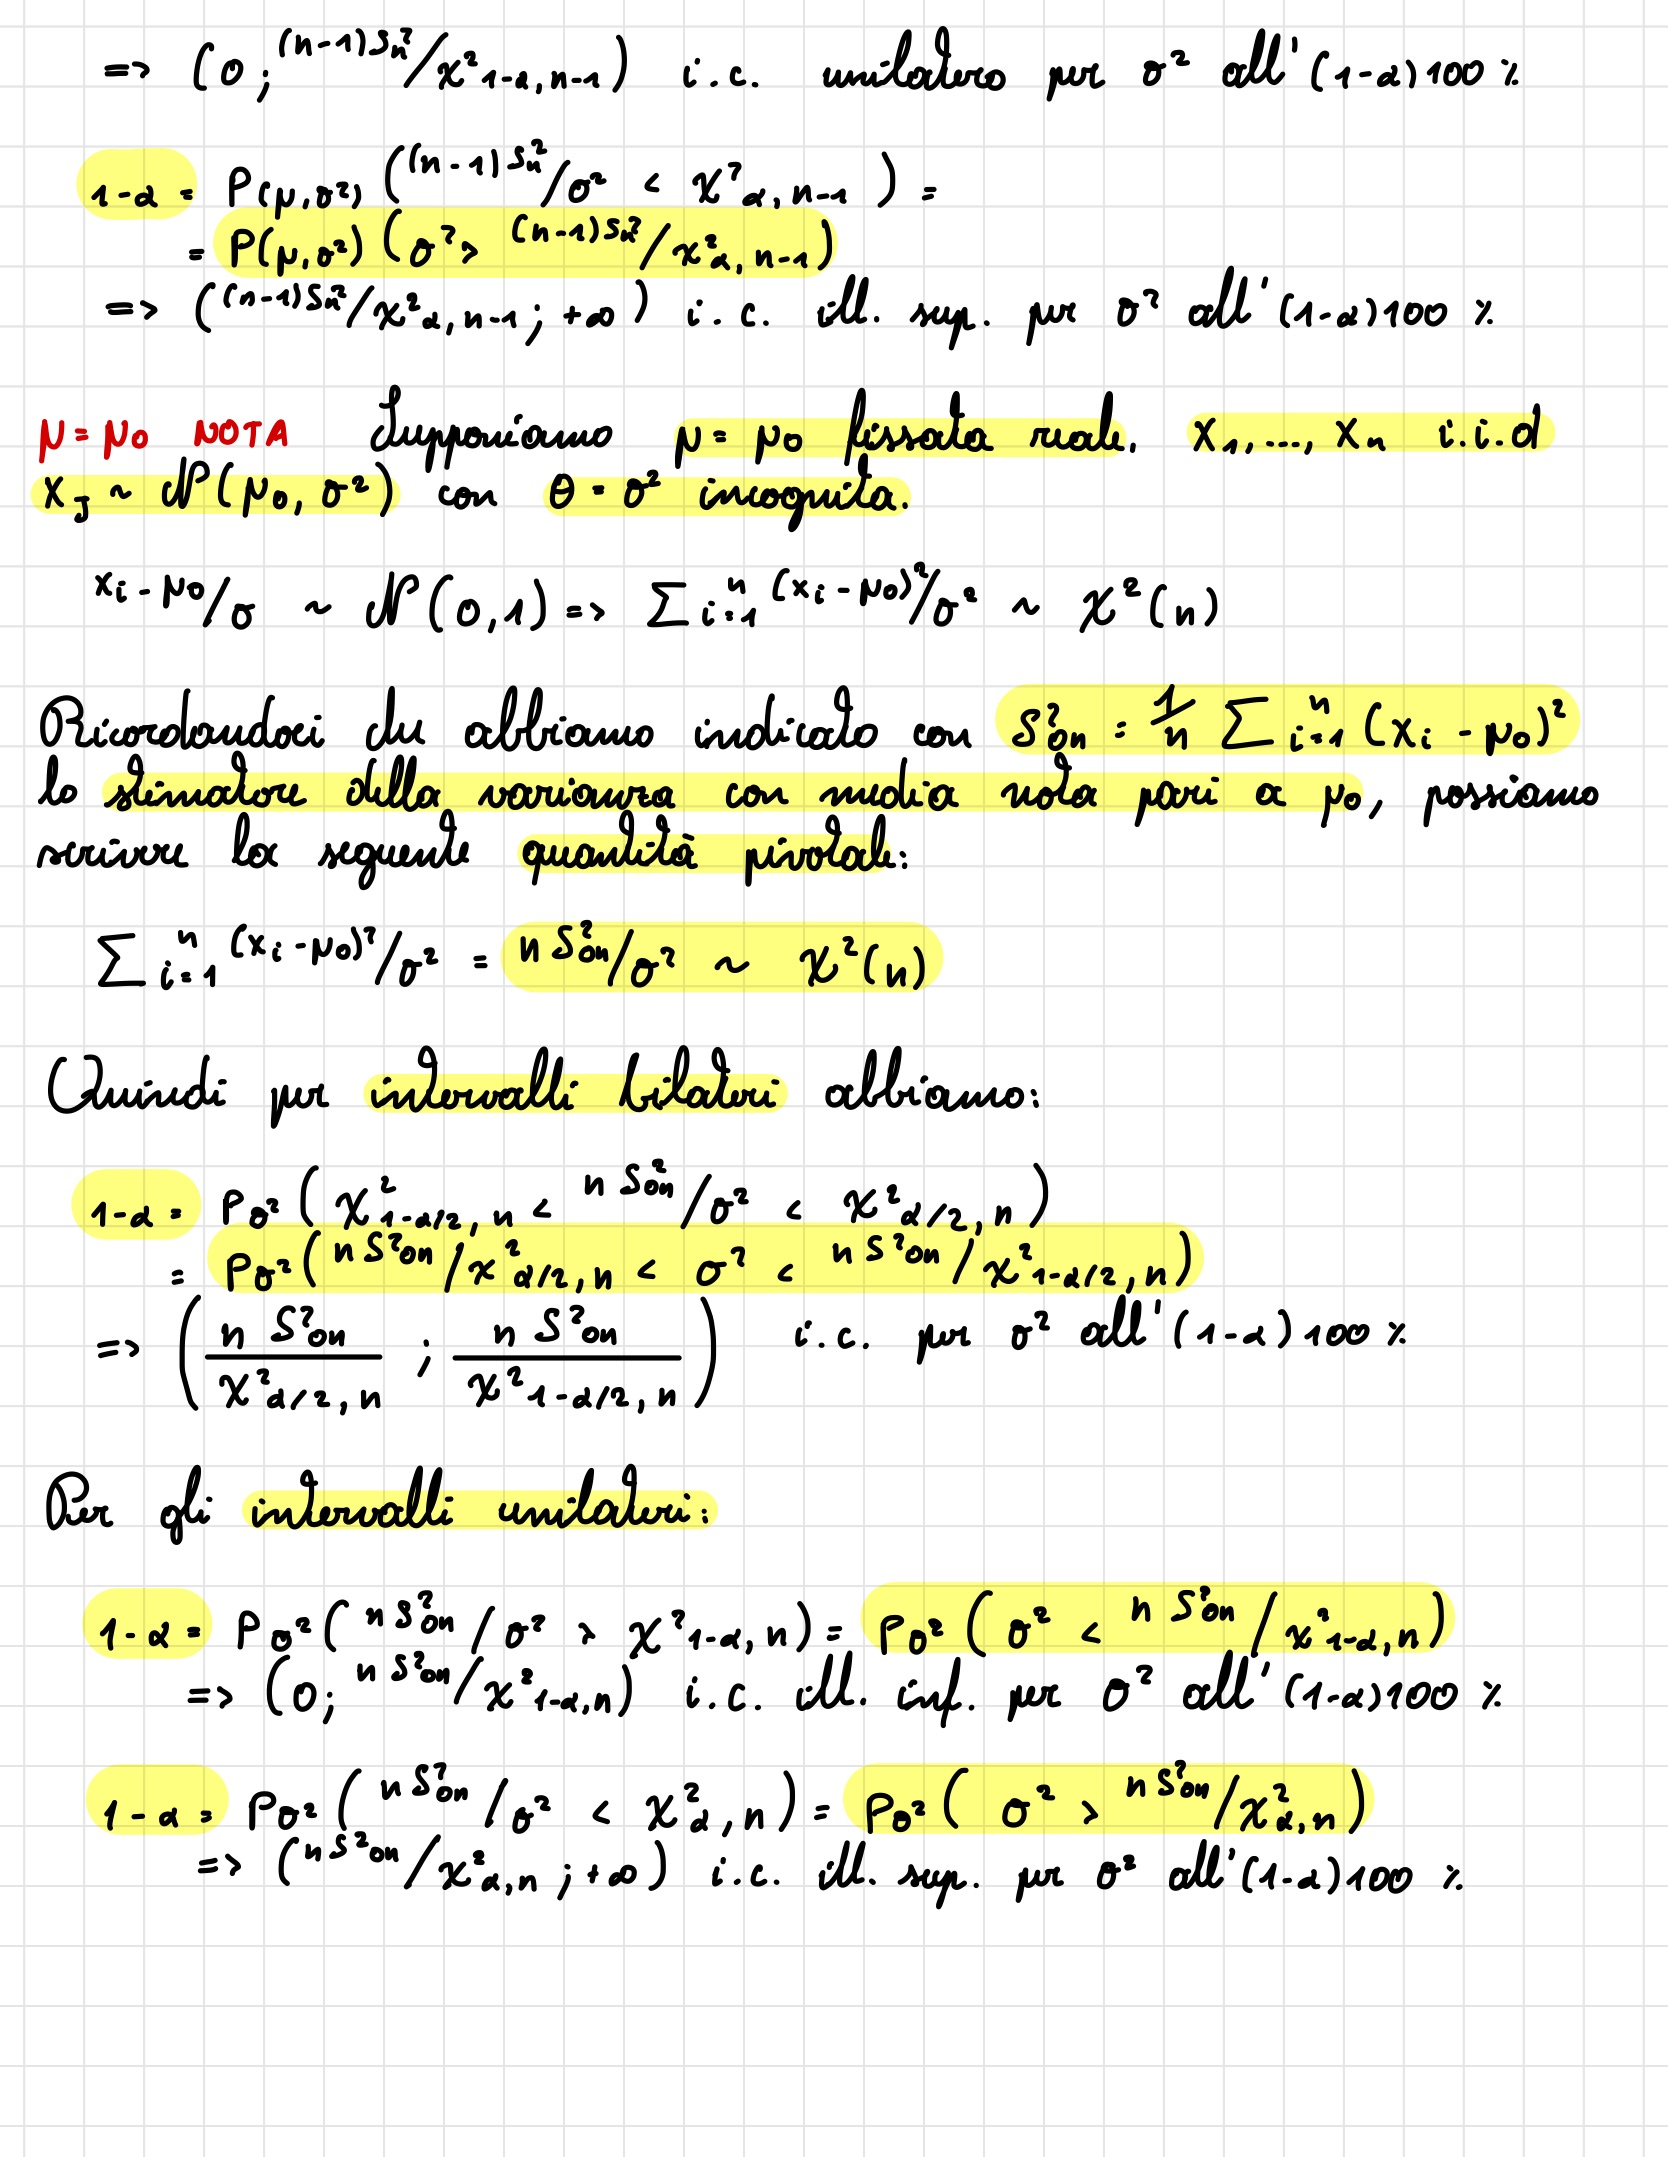 => (0; (n-1)Sn²/χ²1-α, n-1) i.c. unilatero per σ² all'(1-α)100 %
1-α = P(μ,σ²) ((n-1)Sn²/σ² < χ²α, n-1) =
= P(μ,σ²) (σ² > (n-1)Sn²/χ²α, n-1)
=> ((n-1)Sn²/χ²α, n-1; +∞) i.c. ill. sup. per σ² all'(1-α)100 %
μ = μ0 NOTA Supponiamo μ = μ0 fissata reale. X1, ..., Xn i.i.d
Xj ~ N(μ0, σ²) con θ = σ² incognita.
Xi - μ0/σ ~ N(0,1) => Σ i=1 n (Xi - μ0)²/σ² ~ χ²(n)
Ricordandoci che abbiamo indicato con S²0n = 1/n Σ i=1 n (Xi - μ0)²
lo stimatore della varianza con media nota pari a μ0, possiamo
scrivere la seguente quantità pivotale:
Σ i=1 n (Xi - μ0)²/σ² = n S²0n/σ² ~ χ²(n)
Quindi per intervalli bilateri abbiamo:
1-α = Pσ² (χ²1-α/2, n < n S²0n/σ² < χ²α/2, n)
= Pσ² (n S²0n/χ²α/2, n < σ² < n S²0n/χ²1-α/2, n)
=> (n S²0n/χ²α/2, n ; n S²0n/χ²1-α/2, n) i.c. per σ² all'(1-α)100 %
Per gli intervalli unilateri:
1-α = Pσ² (n S²0n/σ² > χ²1-α, n) = Pσ² (σ² < n S²0n/χ²1-α, n)
=> (0; n S²0n/χ²1-α, n) i.c. ill. inf. per σ² all'(1-α)100 %
1-α = Pσ² (n S²0n/σ² < χ²α, n) = Pσ² (σ² > n S²0n/χ²α, n)
=> (n S²0n/χ²α, n ; +∞) i.c. ill. sup. per σ² all'(1-α)100 %